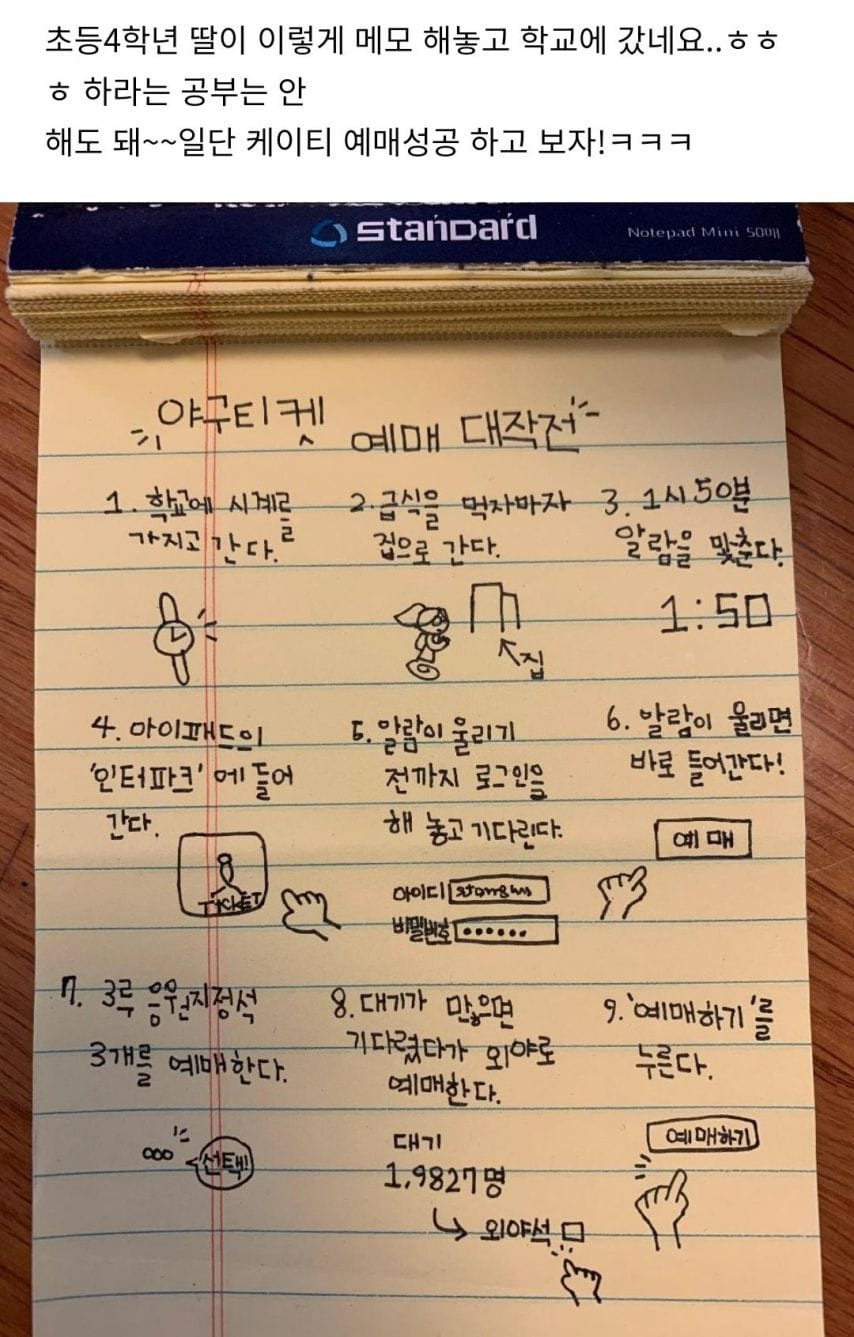 초등4학년 딸이 이렇게 메모 해놓고 학교에 갔네요..ㅎㅎ
ㅎ 하라는 공부는 안
해도 돼~~일단 케이티 예매성공 하고 보자!ㅋㅋㅋ
standard
Notepad Mini 50매
야구티켓
예매 대작전
1. 학교에 시계를
가지고 간다.
2. 급식을 먹자마자
집으로 간다.
집
3. 1시 50분
알람을 맞춘다.
1:50
4. 아이패드의
'인터파크' 에 들어
간다.
TICKET
5. 알람이 울리기
전까지 로그인을
해 놓고 기다린다.
아이디
비밀번호 ••••••
6. 알람이 울리면
바로 들어간다!
예매
7. 3루 응원지정석
3개를 예매한다.
선택!
8. 대기가 많으면
기다렸다가 외야로
예매한다.
대기
1,9827명
외야석
9. '예매하기'를
누른다.
예매하기